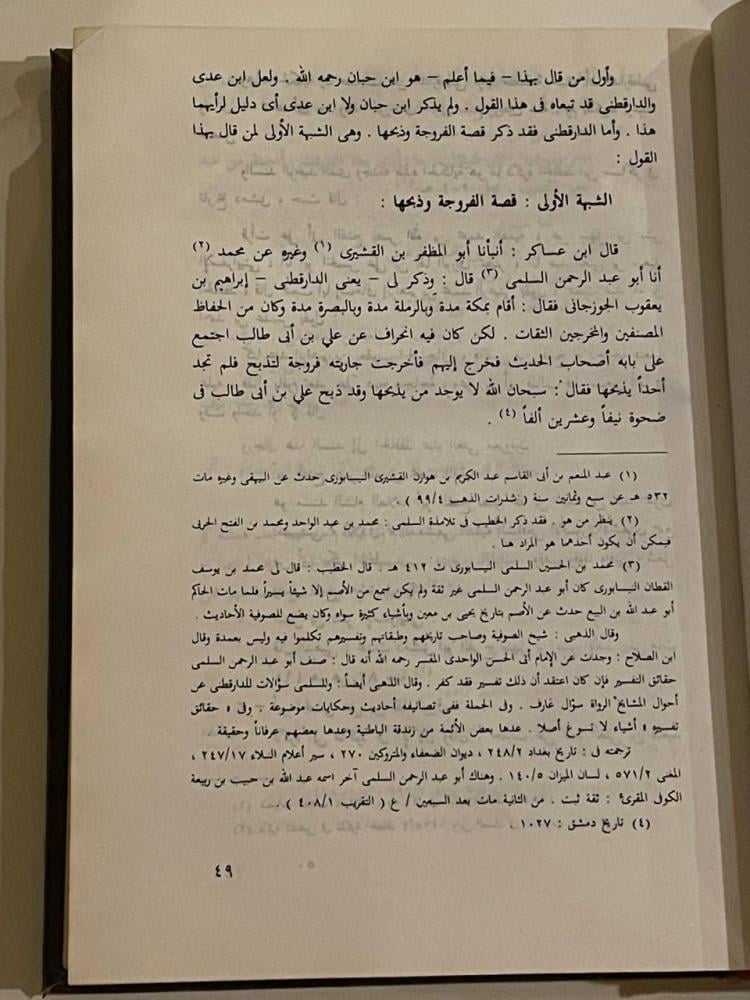 وأول من قال بهذا – فيما أعلم – هو ابن حبان رحمه الله . ولعل ابن عدى
والدارقطنى قد تبعاه فى هذا القول . ولم يذكر ابن حبان ولا ابن عدى أى دليل لرأيهما
هذا . وأما الدارقطنى فقد ذكر قصة الفروجة وذبحها . وهى الشبهة الأولى لمن قال بهذا
القول :
الشبهة الأولى : قصة الفروجة وذبحها :
قال ابن عساكر : أنبأنا أبو المظفر بن القشيرى (١) وغيره عن محمد (٢)
أنا أبو عبد الرحمن السلمى (٣) قال : وذكر لى – يعنى الدارقطنى – إبراهيم بن
يعقوب الجوزجانى فقال : أقام بمكة مدة وبالرملة مدة وبالبصرة مدة وكان من الحفاظ
المصنفين والمخرجين الثقات . لكن كان فيه انحراف عن علي بن أبى طالب اجتمع
على بابه أصحاب الحديث فخرج إليهم فأخرجت جاريته فروجة لتذبح فلم تجد
أحداً يذبحها فقال : سبحان الله لا يوجد من يذبحها وقد ذبح علي بن أبى طالب فى
ضحوة نيفاً وعشرين ألفاً (٤) .
(١) عبد المنعم بن أبى القاسم عبد الكريم بن هوازن القشيرى النيسابورى حدث عن البيهقى وغيره مات
٥٣٢ هـ عن سبع وثمانين سنة ( شذرات الذهب ٩٩/٤ ) .
(٢) ينظر من هو . فقد ذكر الخطيب فى تلامذة السلمى : محمد بن عبد الواحد ومحمد بن الفتح الحربى
فيمكن أن يكون أحدهما هو المراد هنا .
(٣) محمد بن الحسين السلمى النيسابورى ت ٤١٢ هـ . قال الخطيب : قال لى محمد بن يوسف
القطان النيسابورى كان أبو عبد الرحمن السلمى غير ثقة ولم يكن سمع من الأصم إلا شيئاً يسيراً فلما مات الحاكم
أبو عبد الله بن البيع حدث عن الأصم بتاريخ يحيى بن معين وبأشياء كثيرة سواه وكان يضع للصوفية الأحاديث .
وقال الذهبى : شيخ الصوفية وصاحب تاريخهم وطبقاتهم وتفسيرهم تكلموا فيه وليس بعمدة وقال
ابن الصلاح : وجدت عن الإمام أبى الحسن الواحدى المفسر رحمه الله أنه قال : صنف أبو عبد الرحمن السلمى
حقائق التفسير فإن كان اعتقد أن ذلك تفسير فقد كفر . وقال الذهبى أيضاً : وللسلمى سؤالات للدارقطنى عن
أحوال المشايخ الرواة سؤال عارف . وفى الجملة ففى تصانيفه أحاديث وحكايات موضوعة . وفى « حقائق
تفسيره » أشياء لا تسوغ أصلا . عدها بعض الأئمة من زندقة الباطنية وعدها بعضهم عرفاناً وحقيقة .
ترجمته فى : تاريخ بغداد ٢٤٨/٢ ، ديوان الضعفاء والمتروكين ٢٧٠ ، سير أعلام النبلاء ٢٤٧/١٧ ،
المغنى ٥٧١/٢ ، لسان الميزان ١٤٠/٥ . وهناك أبو عبد الرحمن السلمى آخر اسمه عبد الله بن حبيب بن ربيعة
الكوفى المقرئ : ثقة ثبت . من الثانية مات بعد السبعين / ع ( التقريب ٤٠٨/١ ) .
(٤) تاريخ دمشق : ١٠٢٧ .
٤٩